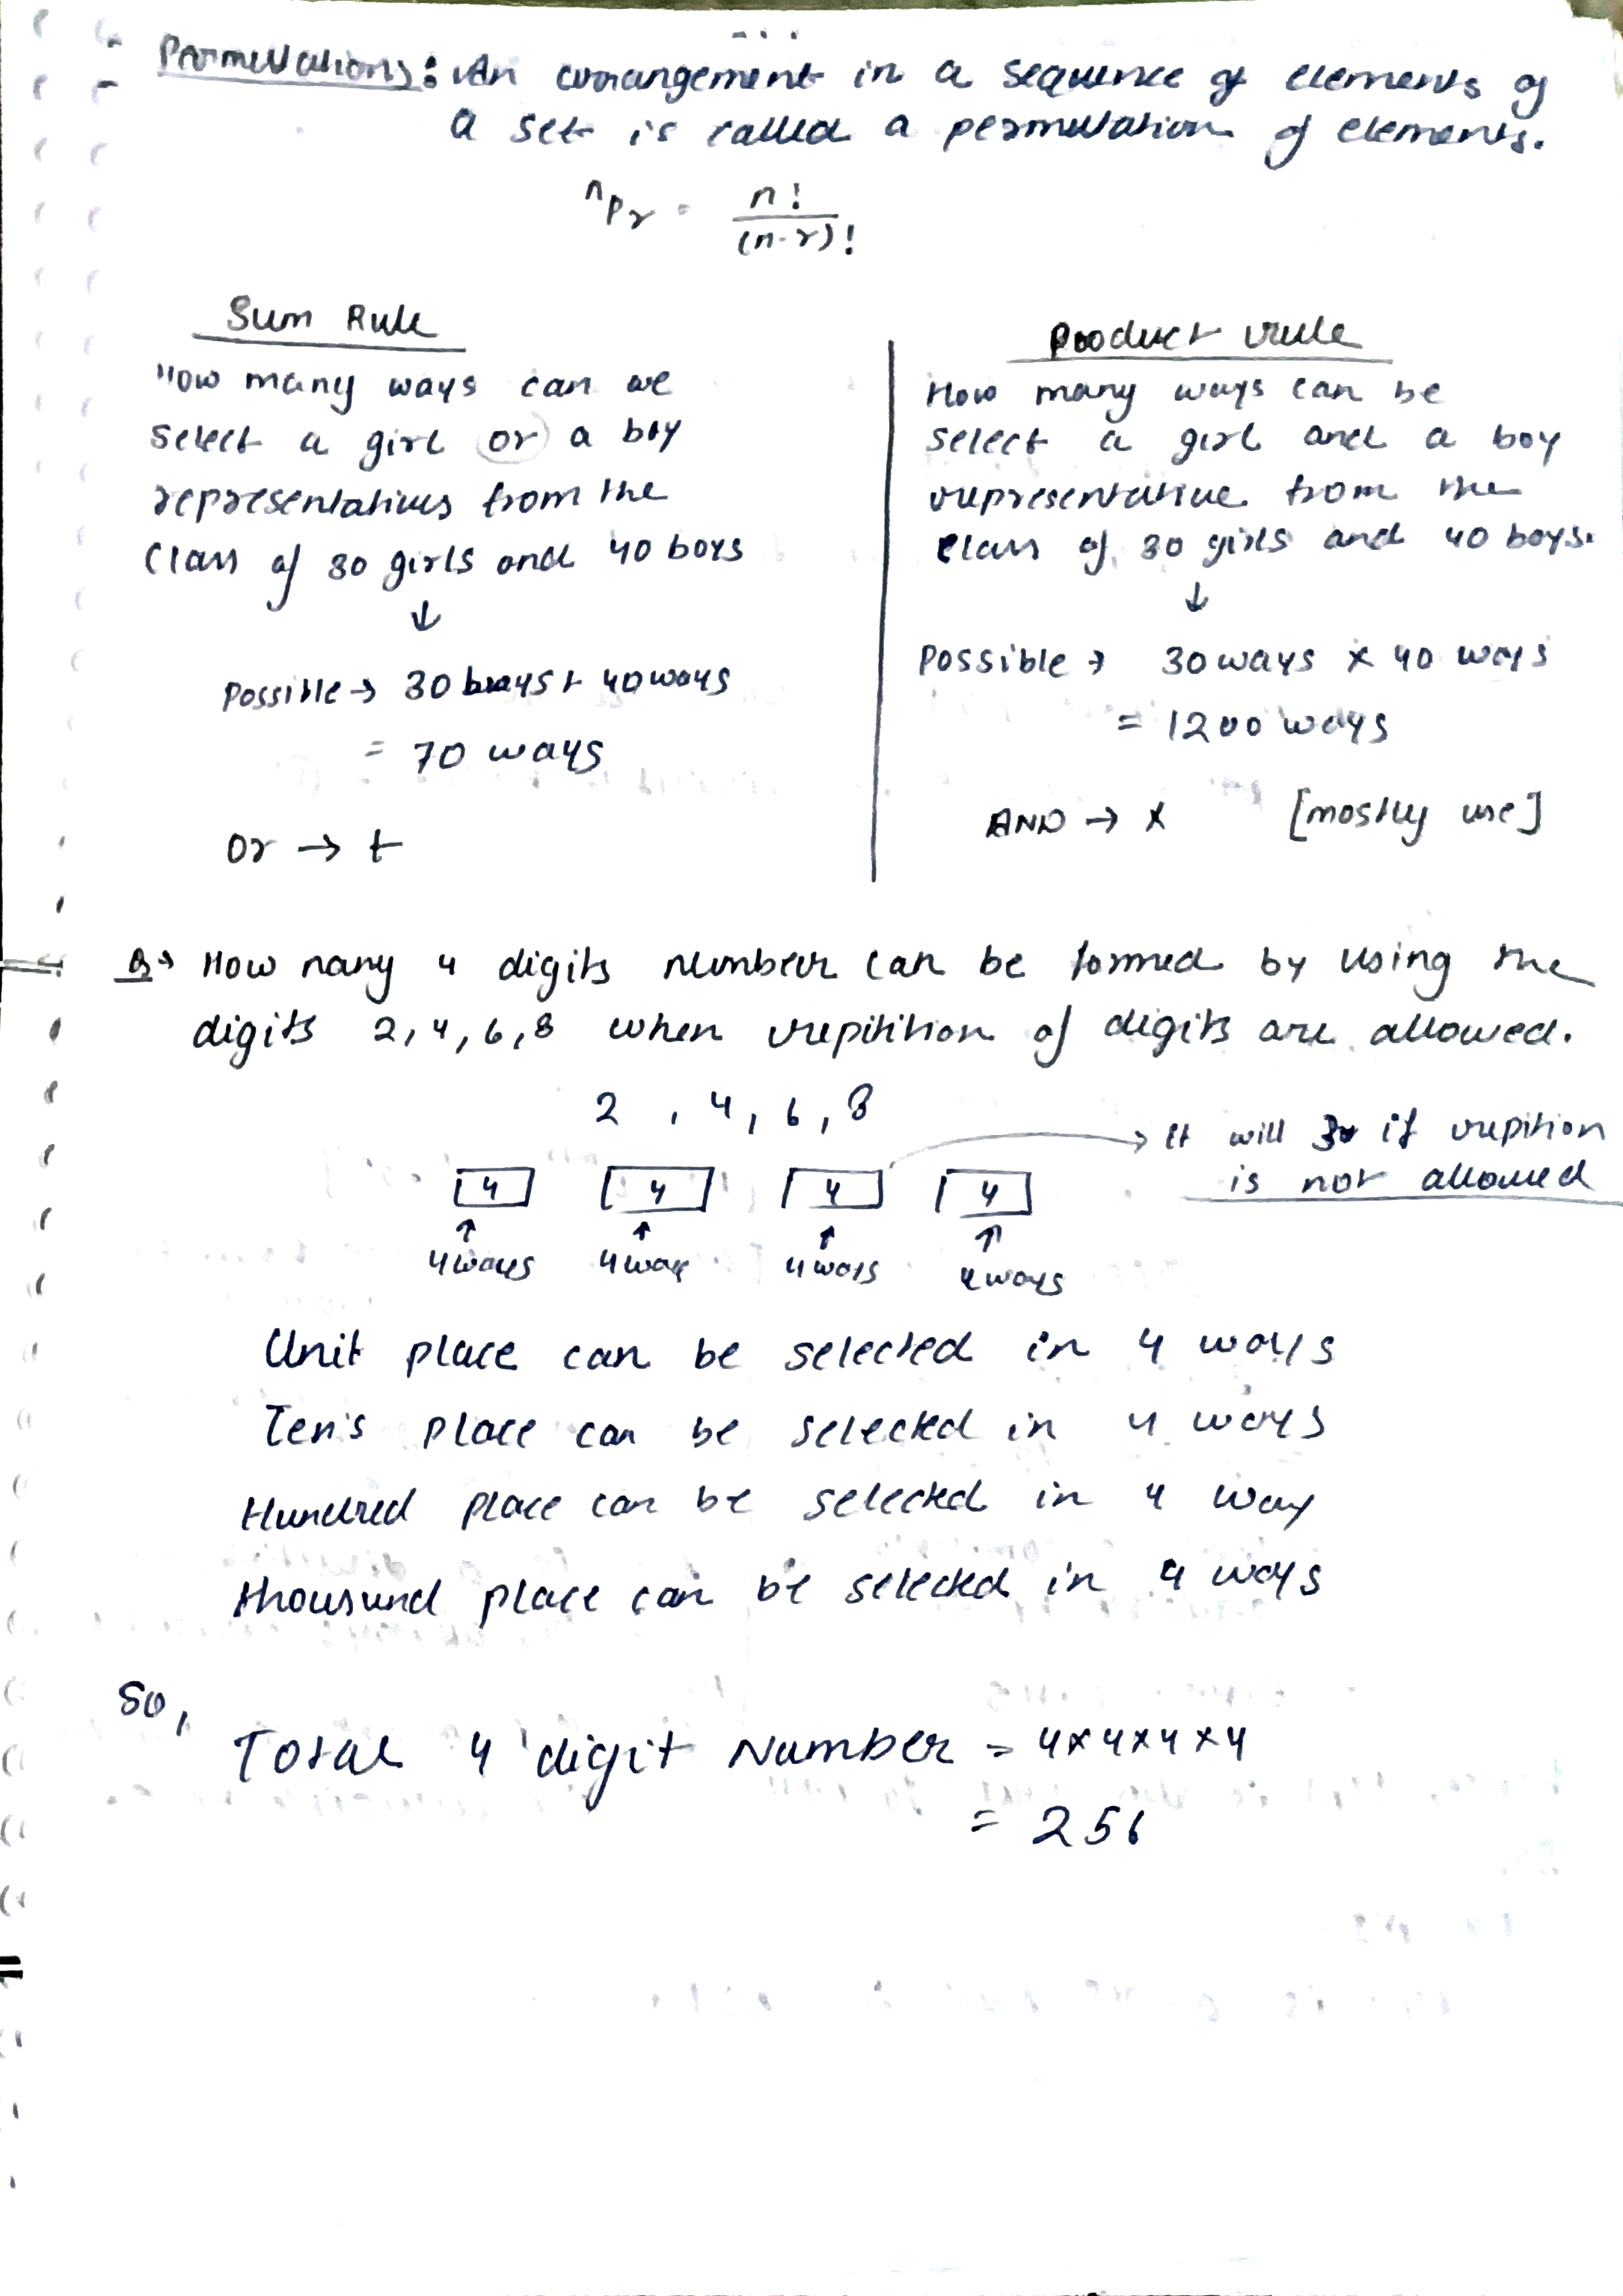 Permutations: An arrangement in a sequence of elements of
a set is called a permutation of elements.
nPr = n!
(n-r)!
Sum Rule
How many ways can we
select a girl or a boy
representatives from the
class of 30 girls and 40 boys
↓
Possible → 30 ways + 40 ways
= 70 ways
Or → +
Product rule
How many ways can be
select a girl and a boy
representative from the
class of 30 girls and 40 boys.
↓
Possible → 30 ways × 40 ways
= 1200 ways
AND → × [mostly use]
Q→ How many 4 digits number can be formed by using the
digits 2, 4, 6, 8 when repitition of digits are allowed.
2 , 4, 6, 8
→ It will 3 if repition
is not allowed
4 4 4 4
↑ ↑ ↑ ↑
4 ways 4 way 4 ways 4 ways
Unit place can be selected in 4 ways
Ten's place can be selected in 4 ways
Hundred place can be selected in 4 way
thousand place can be selected in 4 ways
So,
Total 4 digit Number = 4×4×4×4
= 256